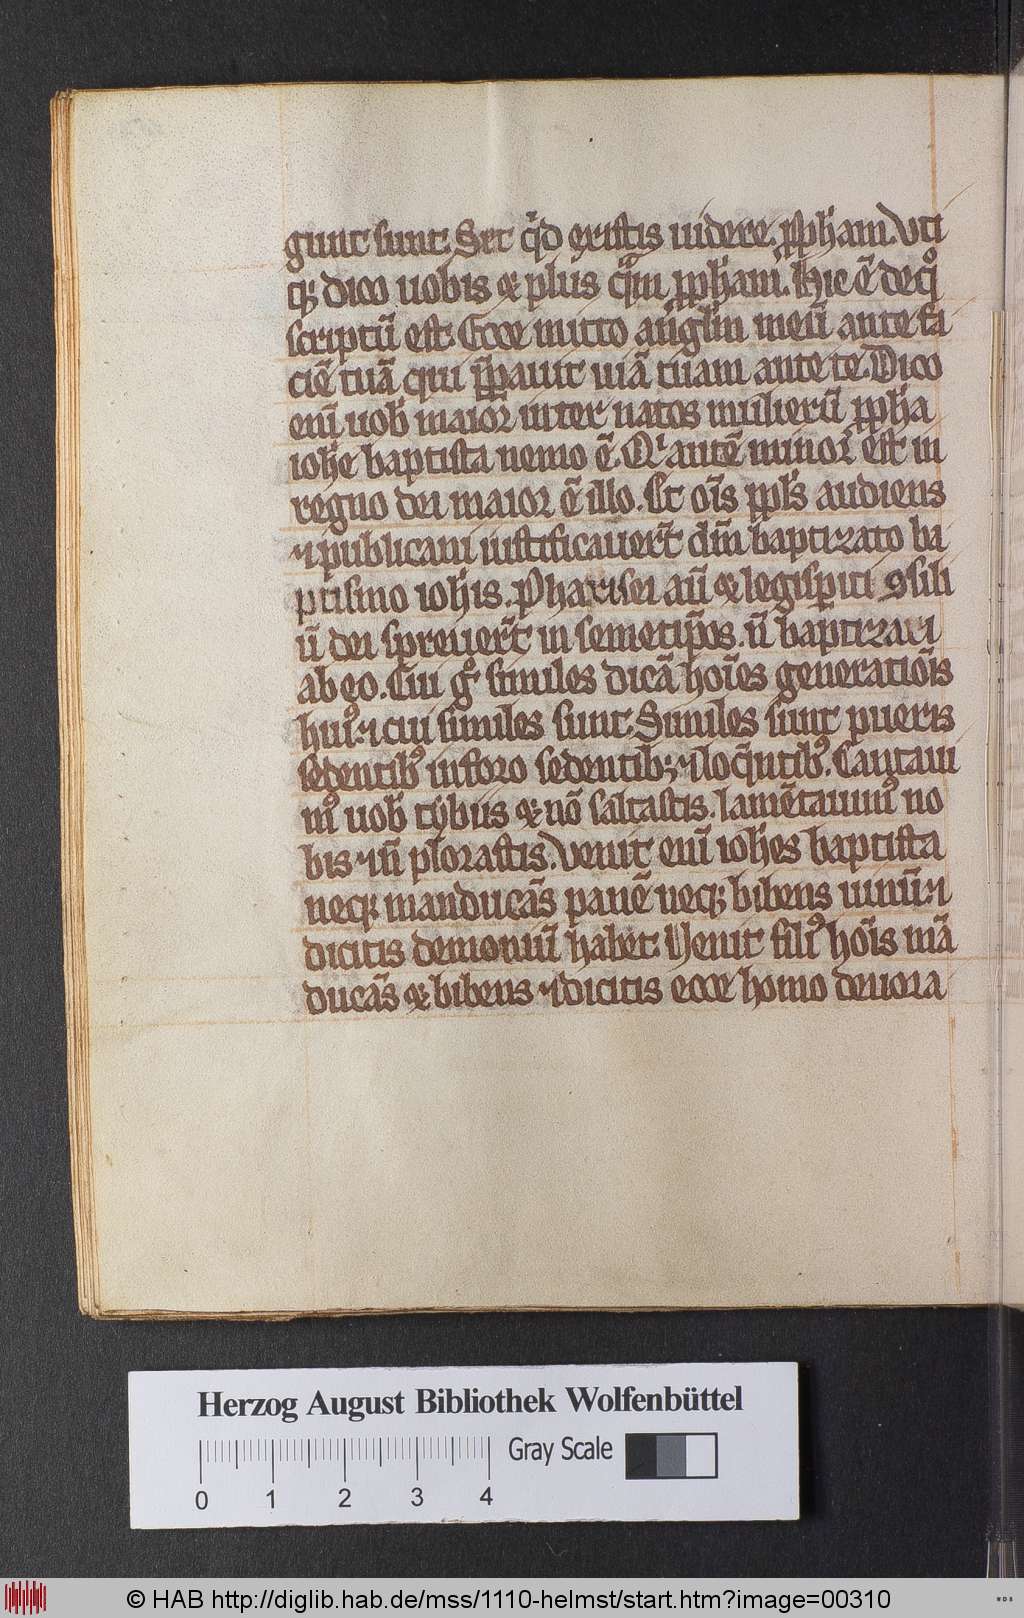 gunt sunt. Set qͥd existis uidere. ꝓph̅am. Vti
qꝫ dico uobis ⁊ plus qͣm ꝓph̅am. Hic ē de qͦ
scriptū est. Ecce mitto angl̅m meū ante fa
ciē tuā qui p̅parauit uiā tuam ante te. Dico
eni̅ uob̅ maior inter natos mulierū ꝓph̅a
ioh̅e baptista nemo ē. Qͥ autē minor est in
regno dei maior ē illo. Et oı̅s ppl̅s audiens
⁊ publicani iustificauer̅t dm̅ baptizato ba
ptismo ioh̅is. Pharisei au̅ ⁊ legisꝑiti ꝯsili
ū dei spreuer̅t in semetip̅os. n̅ baptizari
ab eo. Cui gͦ similes dicā hoı̅es generatiōis
huiꝰ ⁊ cui similes sunt. Similes sunt pueris
sedentibꝰ in foro sedentibꝫ ⁊ loq̅ntibꝰ. Cantaui
mꝰ uob̅ tybiis ⁊ nō saltastis. lamētauimꝰ no
bis ⁊ n̅ plorastis. Venit eni̅ ioh̅es baptista
neqꝫ manducās panē neqꝫ bibens uinū ⁊
dicitis demoniū habet. Venit filiꝰ hoı̅s mā
ducās ⁊ bibens ⁊ dicitis ecce homo deuora
Herzog August Bibliothek Wolfenbüttel
Gray Scale
0 1 2 3 4
© HAB http://diglib.hab.de/mss/1110-helmst/start.htm?image=00310